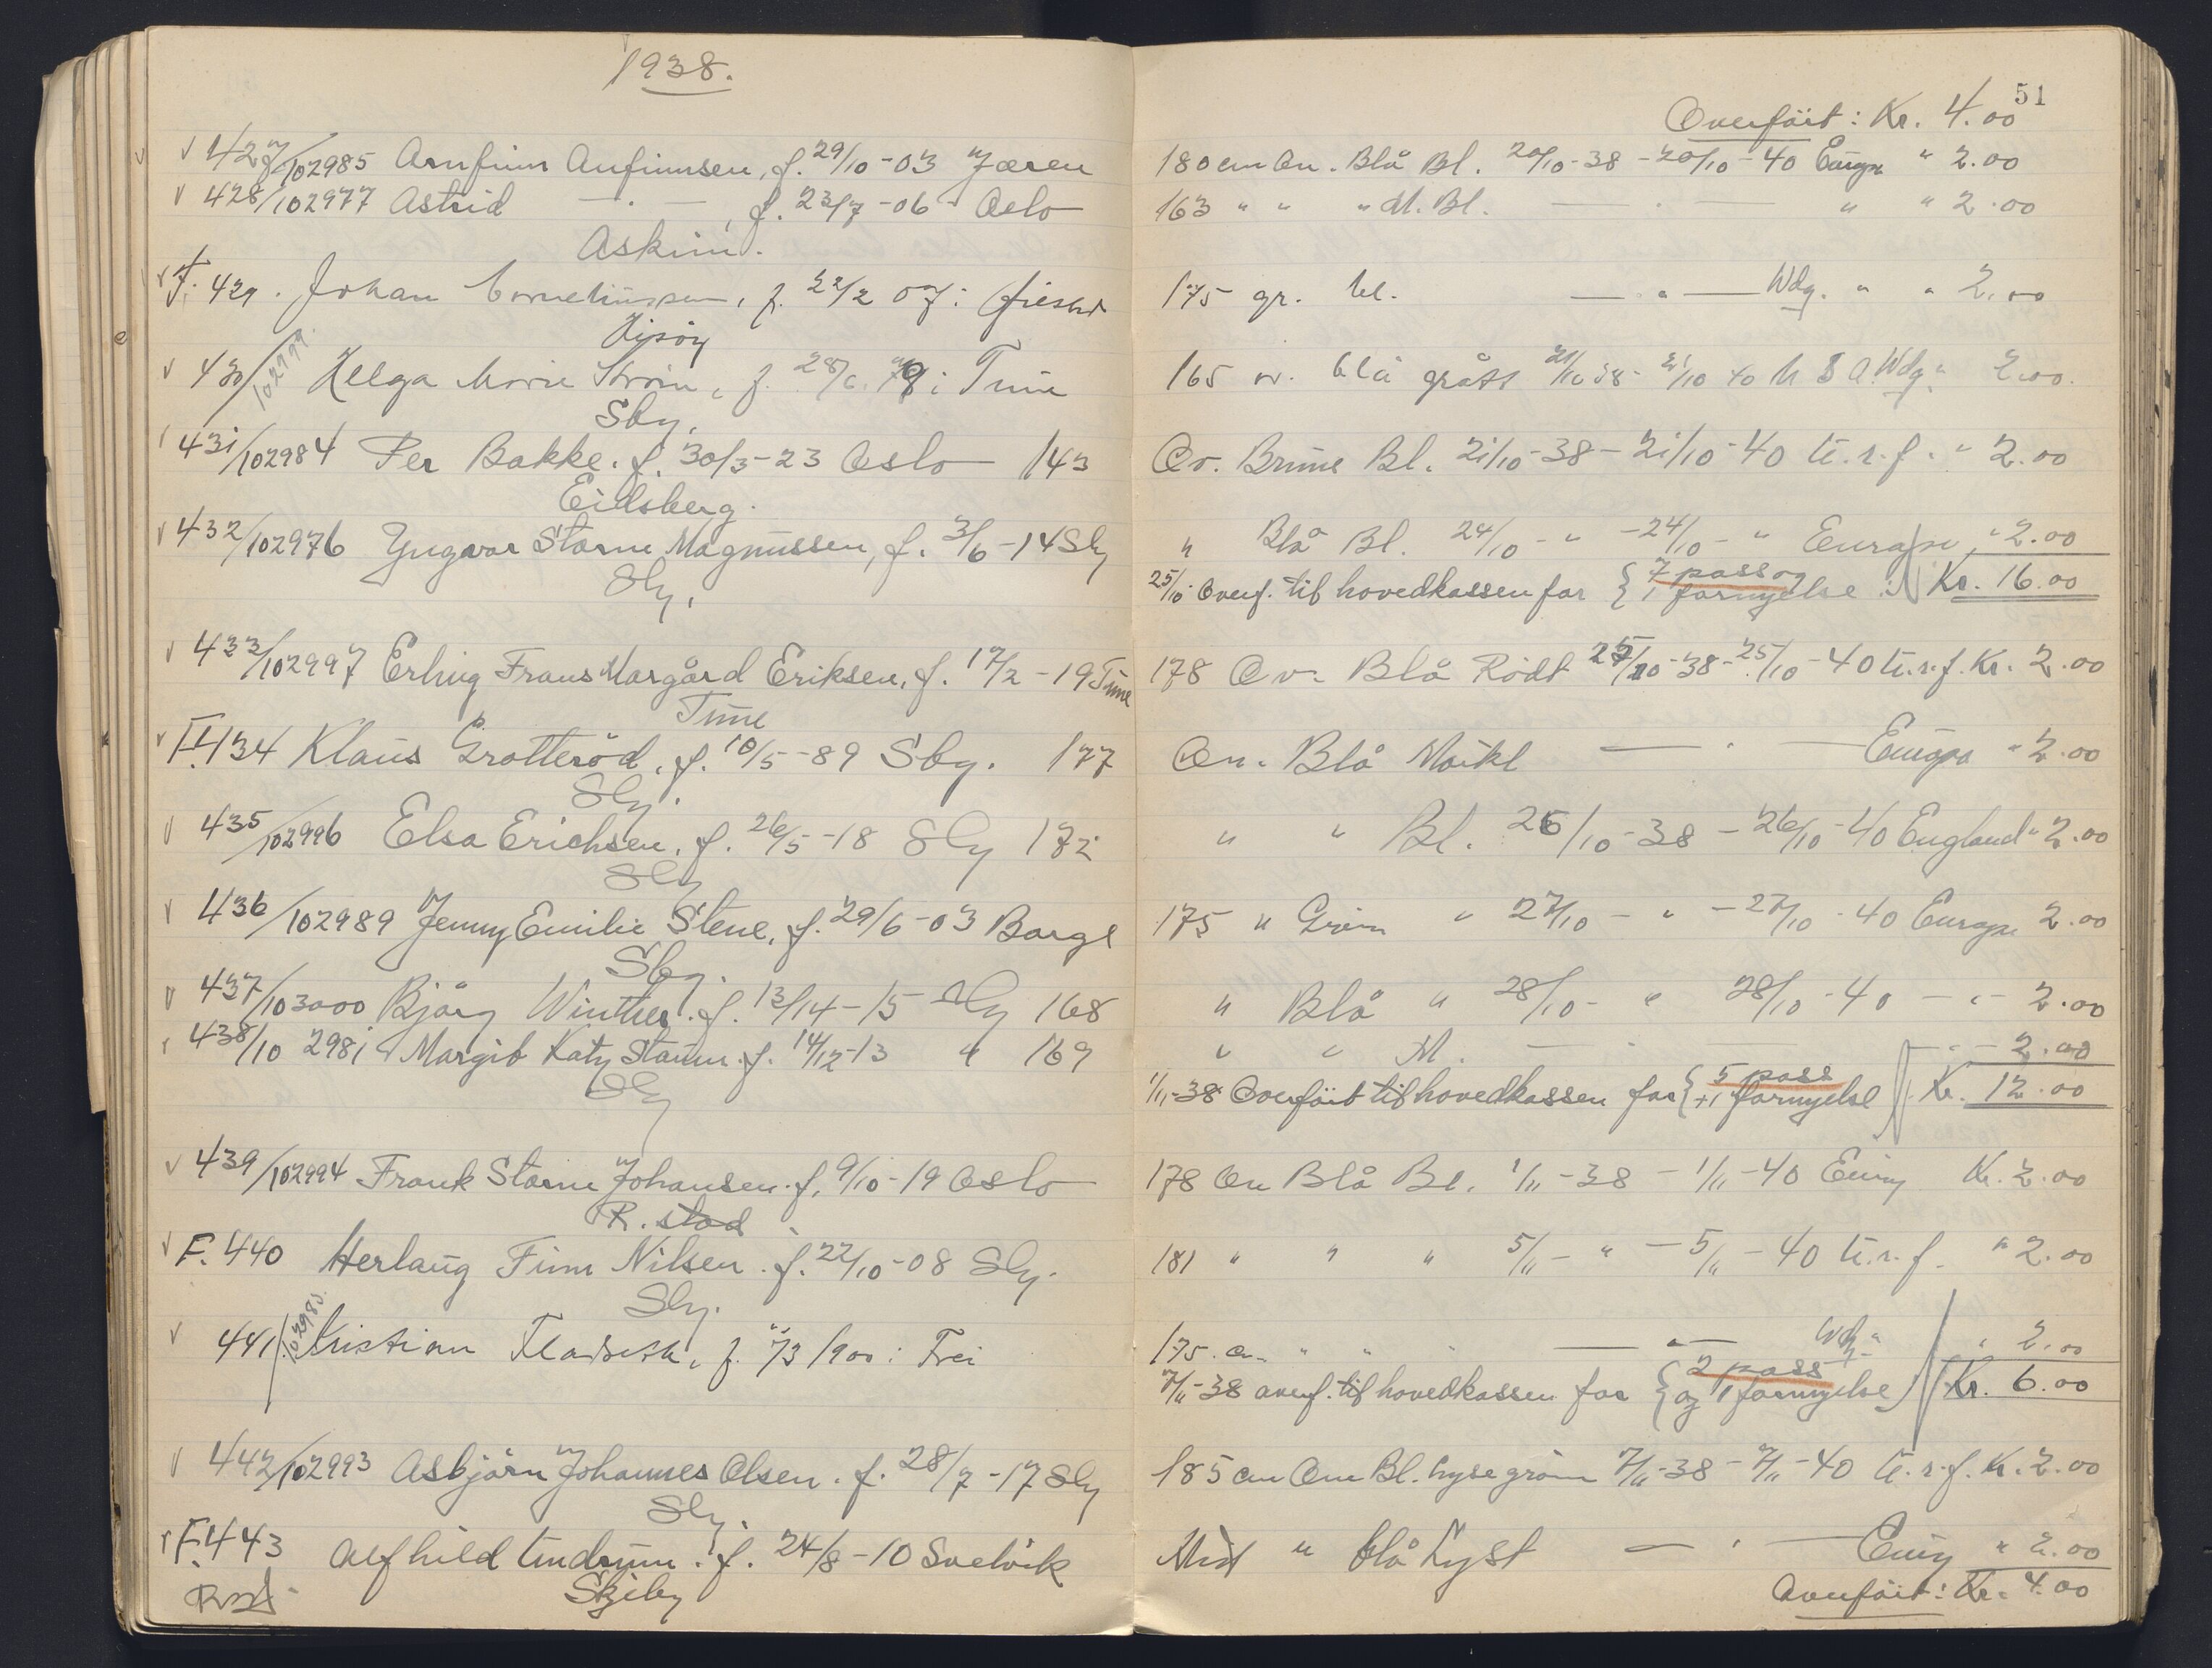 1938.
427/102985 Arnfinn Anfinnsen, f. 29/10-03 Jæren
428/102977 Astrid — . — , f. 23/7-06 - Oslo
Askim.
F. 429. Johan Corneliussen, f. 22/2 07 i
Hisöy
430/102999. Helga Marie Ström, f. 28/6. i Tune
Sby.
431/102984 Per Bakke. f. 30/3-23 Oslo 143
Eidsberg.
432/102976 Yngvar Storm Magnussen, f. 3/6-14 Sby
Sby.
433/102997 Erling Frans Margård Eriksen, f. 17/2-19 Tune
Tune
F. 434 Klaus Grotteröd, f. 10/5-89 Sby. 177
Sby.
435/102996 Elsa Erichsen. f. 26/5-18 Sby 172
Sby
436/102989 Jenny Emilie Stene, f. 29/6-03 Borge
Sby.
437/103000 Bjårg Winther. f. 13/14-15 Sby 168
438/102981 Margit Katy f. 14/12-13 " 169
Sby
439/102994 Frank Storm Johansen. f. 9/10-19 Oslo
F. stad
F. 440 Herlaug Finn Nilsen. f. 22/10-08 Sby.
Sby.
441/ Kristian f. /3 1900 i Frei
442/102993 Asbjörn Johannes Olsen. f. 28/7-17 Sby
Sby.
F. 443 Alfhild Undrum. f. 24/8-10 Svelvik
Skjeby
51
Overfört: Kr. 4.00
180 cm Ov. Blå Bl. 20/10-38-20/10-40 Europa " 2.00
163 " " " M. Bl. — . — " " 2.00
175 gr. bl. — " — Wdg. " " 2.00
165 ov. blå grått 21/10 38 - 21/10 40 U S A. Wdg. " 2.00.
Ov. Brune Bl. 21/10-38-21/10-40 U.r.f. " 2.00
" Blå Bl. 24/10 - " -24/10 - " Europa, " 2.00
25/10 overf. til hovedkassen for { 7 pass og 1 fornyelse : Kr. 16.00
178 Ov. Blå Rödt 25/10-38-25/10-40 U.r.f. Kr. 2.00
Ov. Blå Mörkt — . — Europa " 2.00
" " Bl. 26/10-38-26/10-40 England " 2.00
175 " Grön " 27/10 - " -27/10-40 Europa 2.00
" Blå " 28/10 - " 28/10-40 - " - 2.00
" " M. — . — - " - 2.00
1/11-38 Overfört til hovedkassen for { 5 pass + 1 fornyelse Kr. 12.00
178 Ov Blå Bl. 1/11-38 - 1/11-40 Kr. 2.00
181 " " " 5/11 - " - 5/11-40 U.r.f. " 2.00
175. o. " " " — " — Wdg. " " 2.00
7/11-38 overf. til hovedkassen for { 2 pass og 1 fornyelse Kr. 6.00
185 cm Ov Bl. lysegrön 7/11-38 - 7/11-40 U.r.f. Kr. 2.00
Mid " blå Lyst — . — " 2.00
Overfört: Kr. 4.00